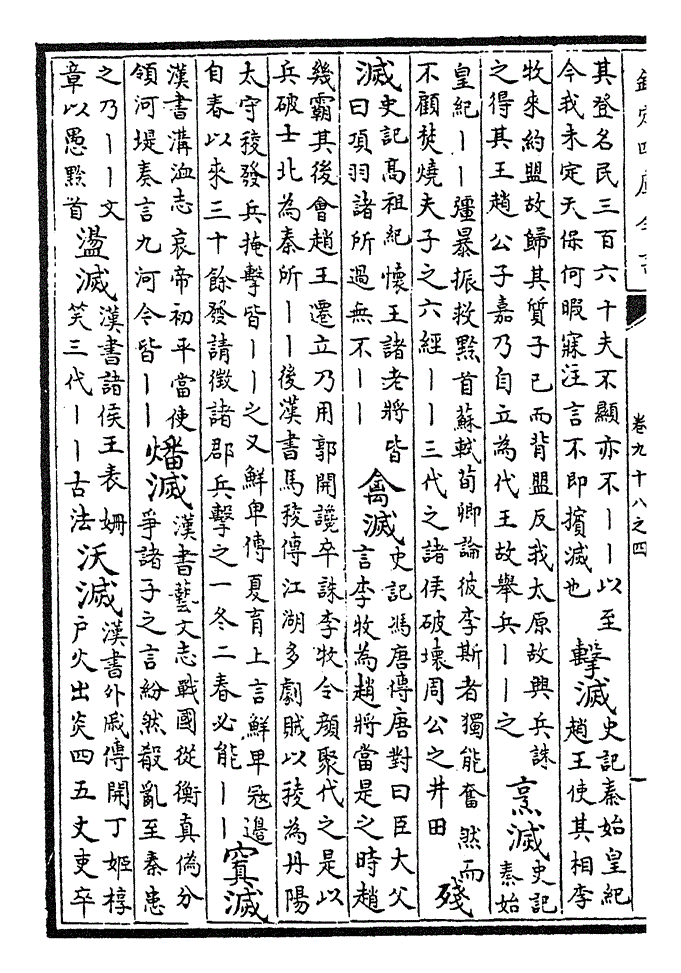 欽定四庫全書
卷九十八之四
一
其登名民三百六十夫不顯亦不丨丨以至
今我未定天保何暇寐注言不即擯滅也
擊滅
史記秦始皇紀
趙王使其相李
牧來約盟故歸其質子已而背盟反我太原故興兵誅
之得其王趙公子嘉乃自立為代王故舉兵丨丨之
烹滅
史記
秦始
皇紀丨丨彊暴振救黔首蘇軾荀卿論彼李斯者獨能奮然而
不顧焚燒夫子之六經丨丨三代之諸侯破壞周公之井田
殘
滅
史記高祖紀懷王諸老將皆
曰項羽諸所過無不丨丨
禽滅
史記馮唐傳唐對曰臣大父
言李牧為趙將當是之時趙
幾霸其後會趙王遷立乃用郭開讒卒誅李牧令顔聚代之是以
兵破士北為秦所丨丨後漢書馬稜傳江湖多劇賊以稜為丹陽
太守稜發兵掩擊皆丨丨之又鮮卑傳夏育上言鮮卑冦邊
自春以來三十餘發請徵諸郡兵擊之一冬二春必能丨丨
寘滅
漢書溝洫志哀帝初平當使
領河堤奏言九河今皆丨丨
燔滅
漢書藝文志戰國從衡真偽分
爭諸子之言紛然殽亂至秦患
之乃丨丨文
章以愚黔首
盪滅
漢書諸侯王表姍
笑三代丨丨古法
沃滅
漢書外戚傳開丁姬椁
戶火出炎四五丈吏卒